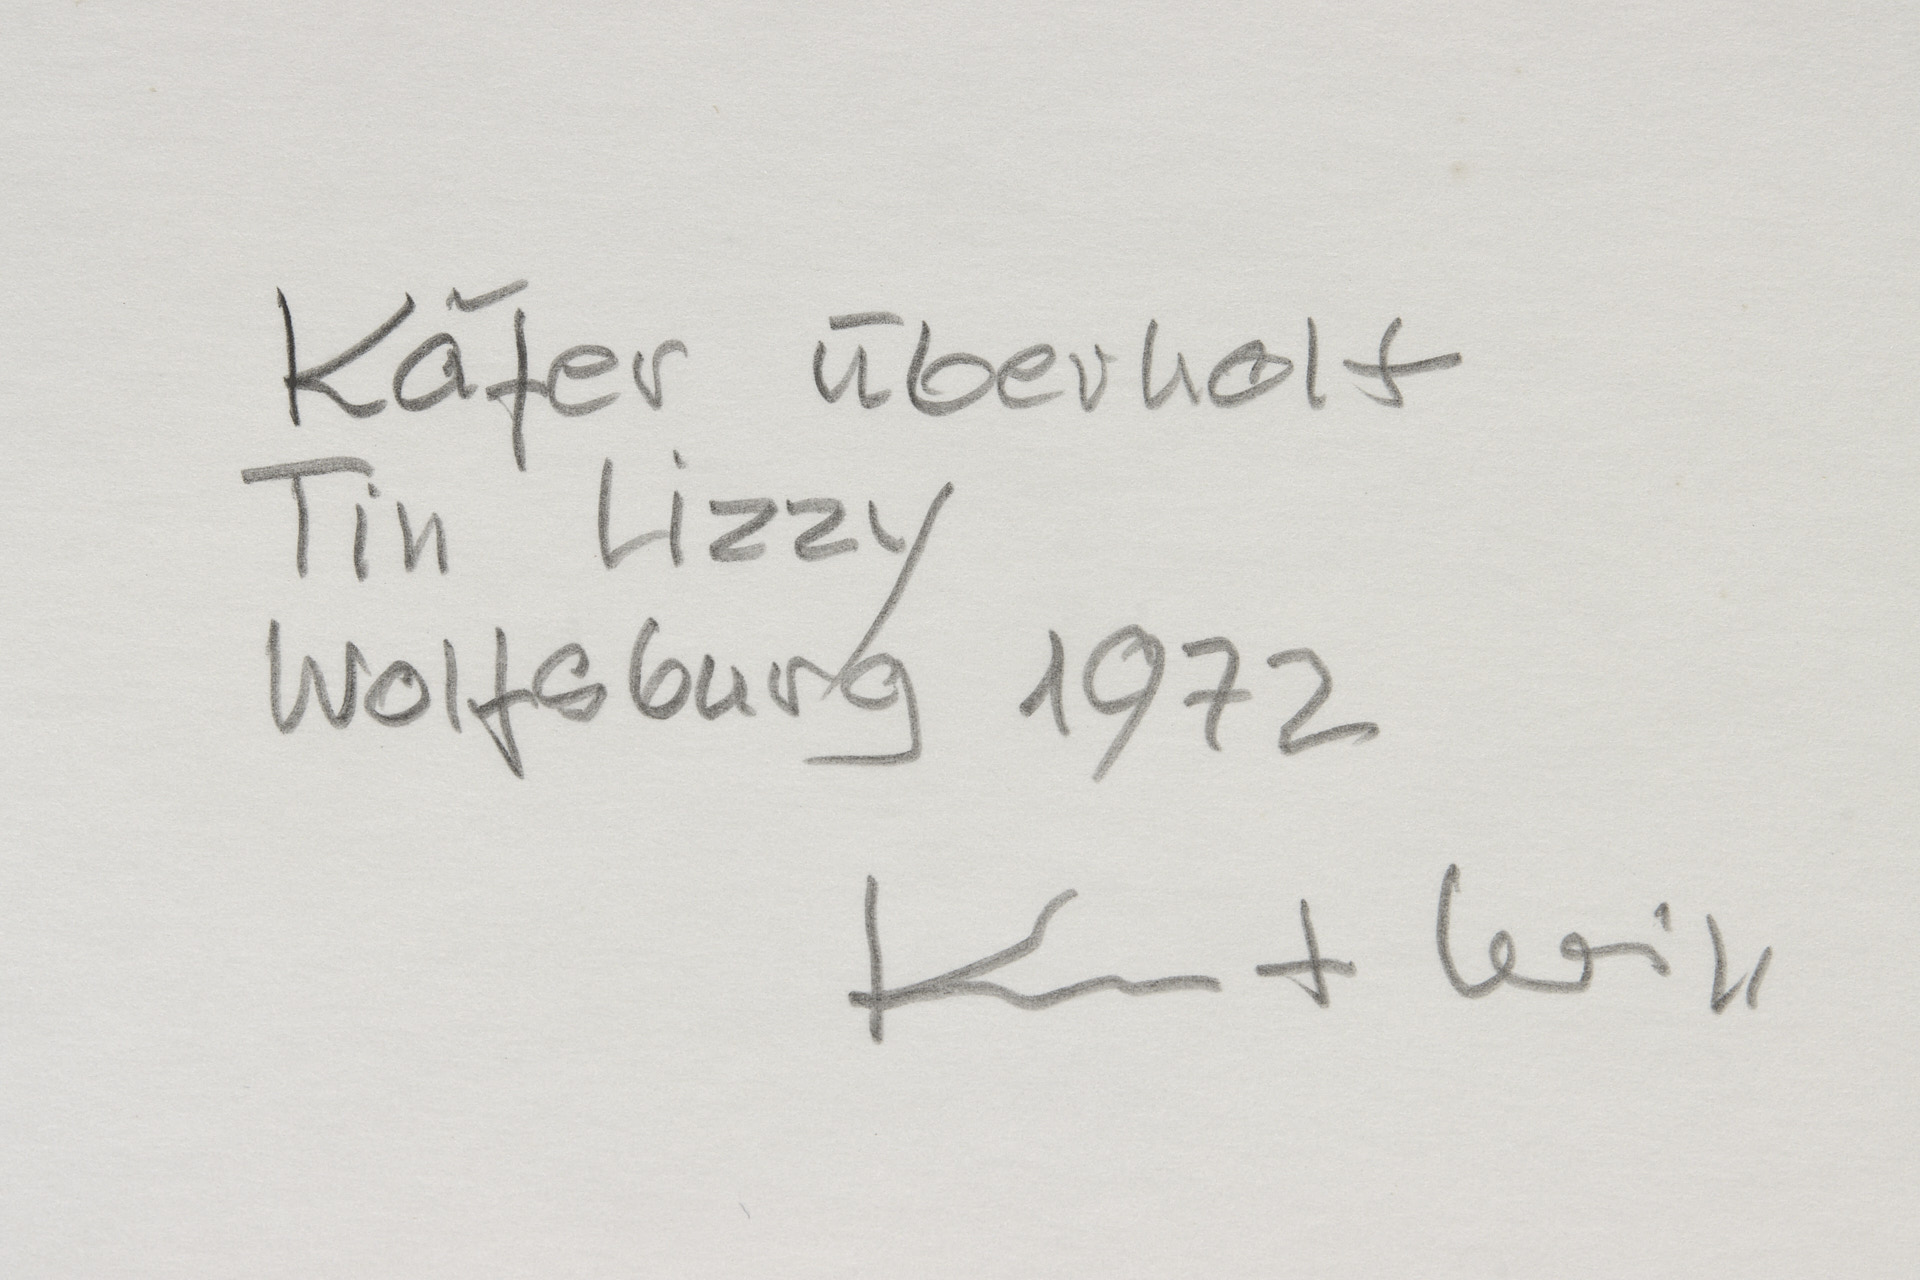 Käfer überholt
Tin Lizzy
Wolfsburg 1972